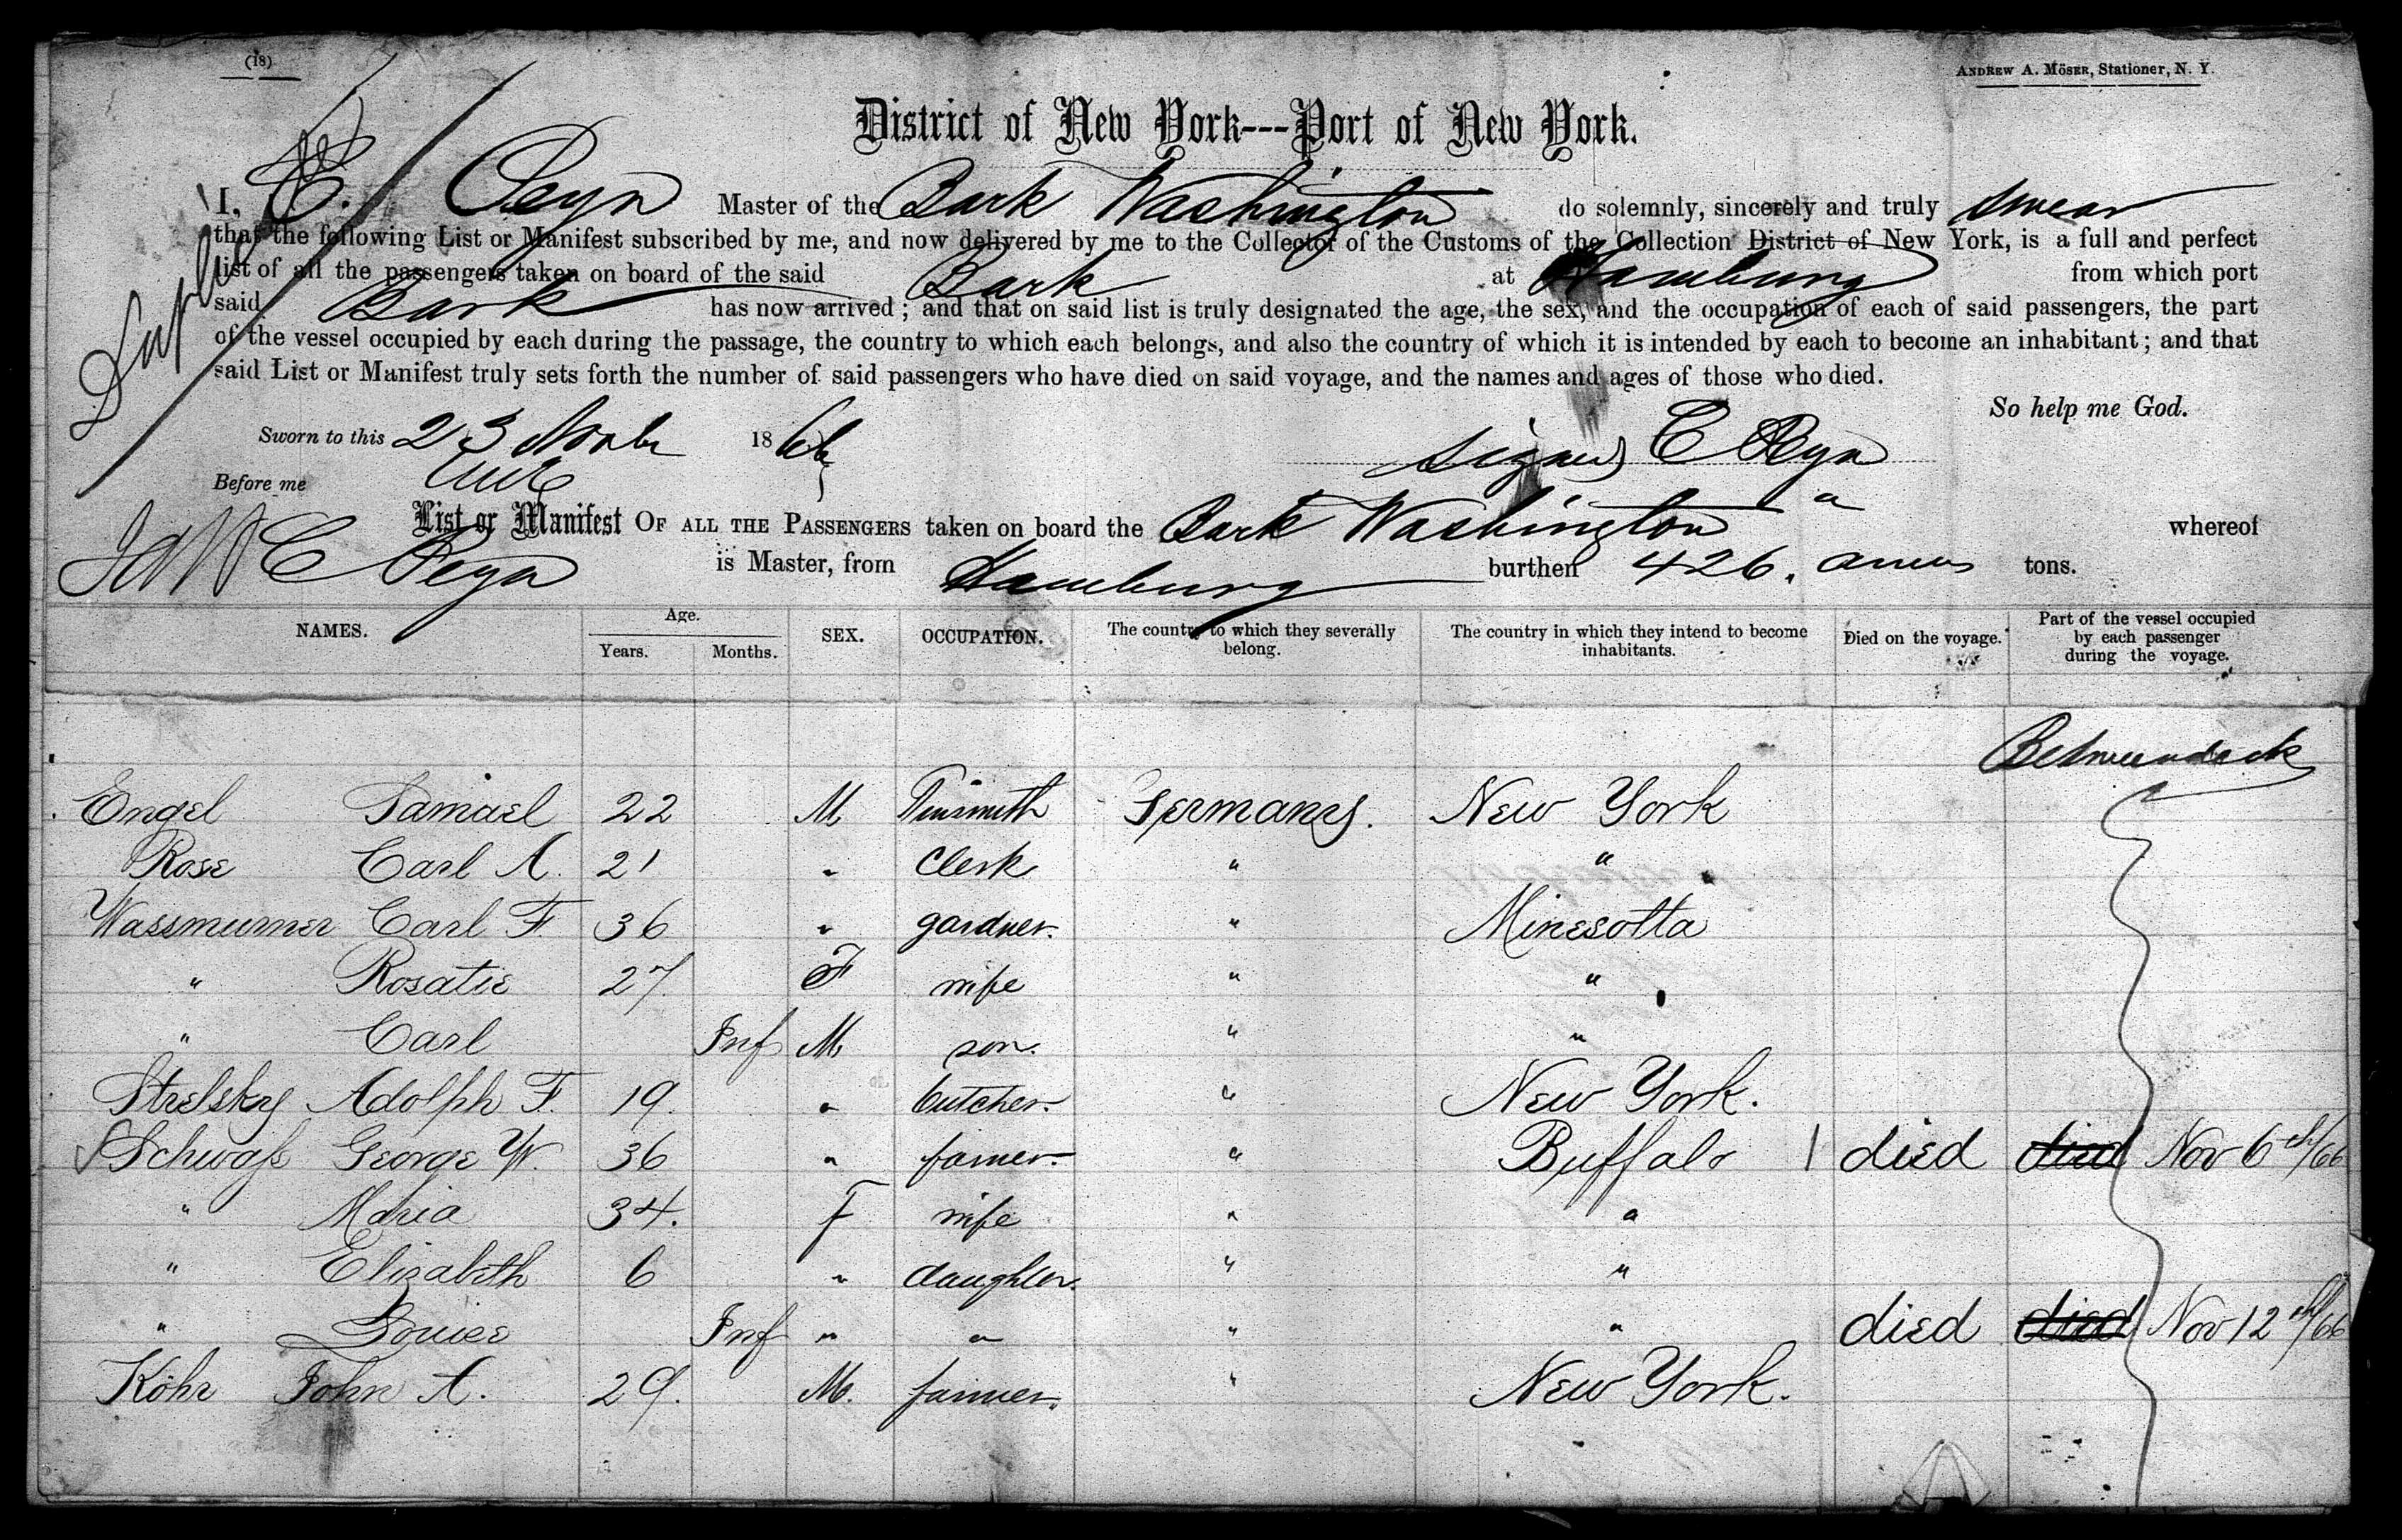 (18)
Andrew A. Möser, Stationer, N. Y.
District of New York---Port of New York.
I, C. Peyn Master of the Bark Washington do solemnly, sincerely and truly swear
that the following List or Manifest subscribed by me, and now delivered by me to the Collector of the Customs of the Collection District of New York, is a full and perfect
list of all the passengers taken on board of the said Bark at Hamburg from which port
said Bark has now arrived; and that on said list is truly designated the age, the sex, and the occupation of each of said passengers, the part
of the vessel occupied by each during the passage, the country to which each belongs, and also the country of which it is intended by each to become an inhabitant; and that
said List or Manifest truly sets forth the number of said passengers who have died on said voyage, and the names and ages of those who died.
So help me God.
Sworn to this 23 Novbr 1866
signed C Peyn
Before me
List or Manifest OF ALL THE PASSENGERS taken on board the Bark Washington whereof
C Peyn is Master, from Hamburg burthen 426. tons.
NAMES. Age. Years. Months. SEX. OCCUPATION. The country to which they severally belong. The country in which they intend to become inhabitants. Died on the voyage. Part of the vessel occupied by each passenger during the voyage.
Betweendeck
Engel Samael 22 M Tinsmith Germany. New York
Rose Carl A. 21 " Clerk " "
Wassmurner Carl F. 36 " gardner. " Minesotta
" Rosatie 27 F wife " "
" Carl Inf M son. " "
Strelsky Adolph F. 19. " butcher. " New York.
Schwaß George W. 36 " farmer. " Buffalo 1 died died Nov 6th/66
" Maria 34. F wife " "
" Elizabeth 6 " daughter. " "
" Louise Inf " " " " died died Nov 12th/66
Köhr John A. 29. M. farmer. " New York.